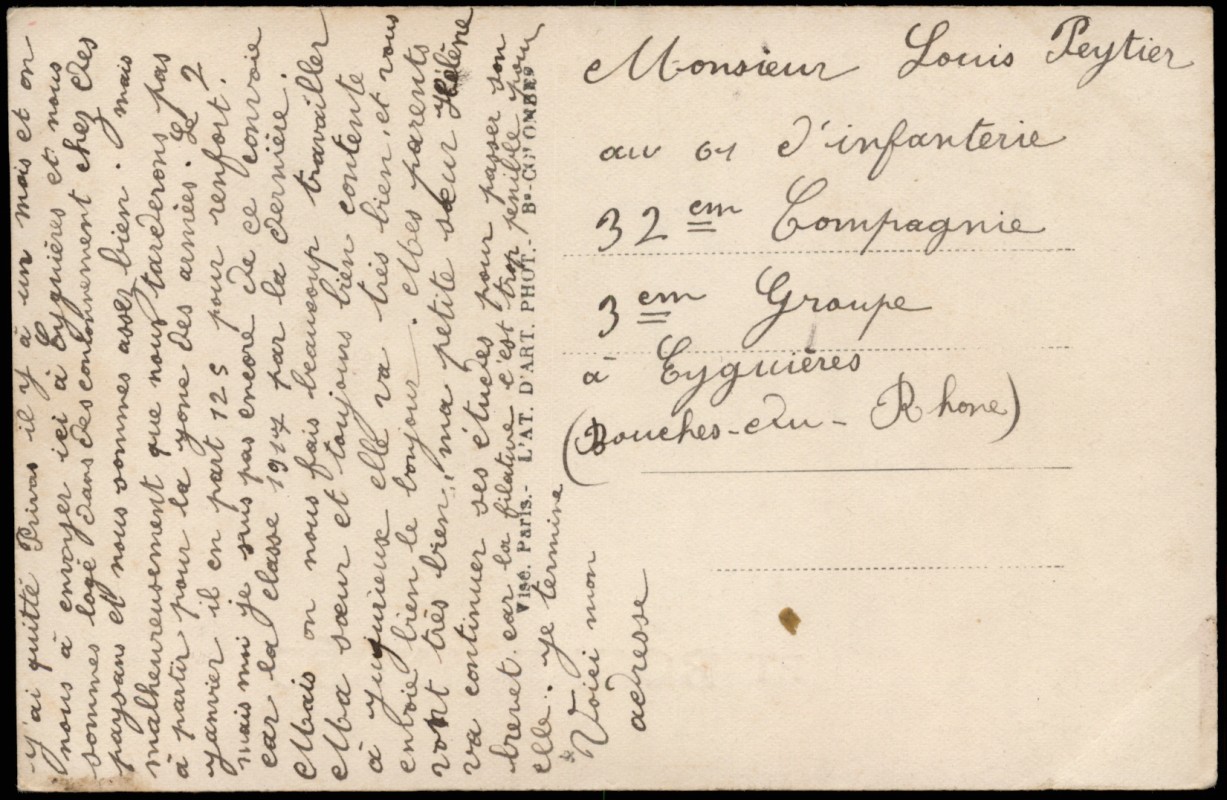 J'ai quitté Privas il y à un mois et on
nous à envoyer ici à Eyguières et nous
sommes logé dans des contonnement chez des
paysans et nous sommes assez bien. mais
malheureusement que nous tarderons pas
à partir pour la zone des armées. Le 2
janvier il en part 125 pour renfort.
mais moi je suis pas encore de ce convoie
car la classe 1917 par la dernière.
Mais on nous fais beaucoup travailler
Ma sœur et toujours bien contente
à Jujurieux elle va très bien, et vous
envoie bien le bonjour. Mes parents
vont très bien, ma petite sœur Hélène
va continuer ses études pour passer son
brevet. car la filature c'est trop penible pour
elle. je termine
Voici mon
adresse
Visé. Paris.- L'AT. D'ART. PHOT.- Bs-COLOMBES
Monsieur Louis Peytier
au 61 d'infanterie
32 em Compagnie
3 em Groupe
à Eyguières
(Bouches-du-Rhone)